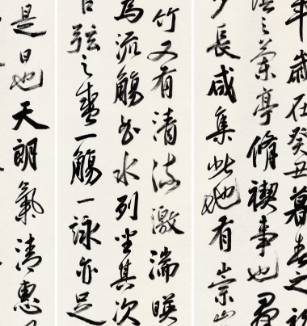 年歲在癸丑暮春之
之蘭亭脩禊事也羣
少長咸集此地有崇山
竹又有清流激湍映
為流觴曲水列坐其次
弦之盛一觴一詠亦足
是日也天朗氣清惠